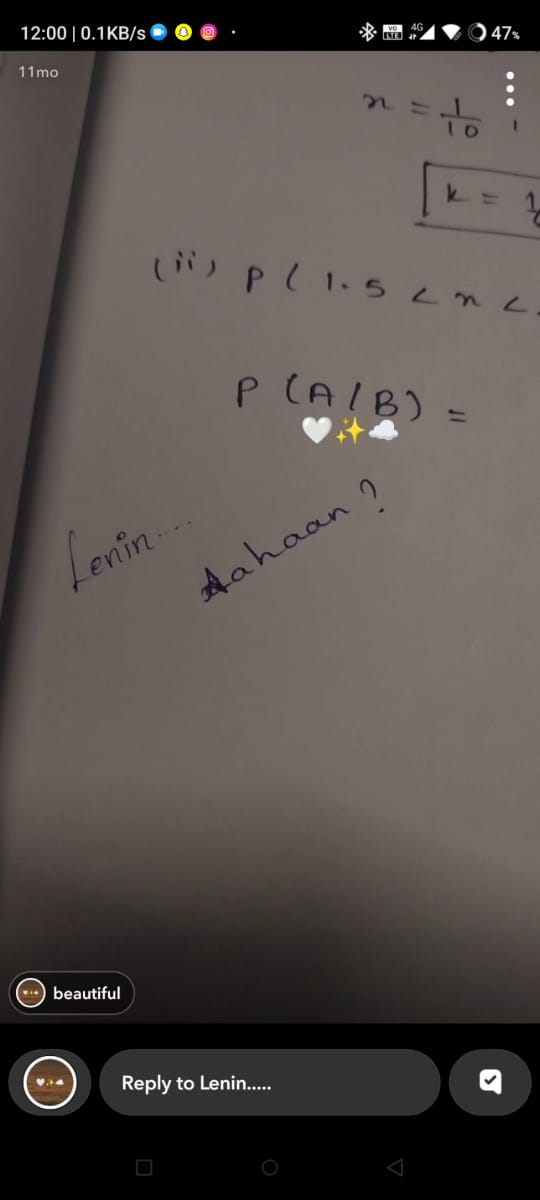 12:00 | 0.1KB/s
VO LTE 4G 47%
11mo
x = 1/10 ,
k = 1
(ii) P ( 1.5 < x <
P (A/B) =
🤍✨☁️
Lenin....
Aahaan ?
beautiful
Reply to Lenin.....